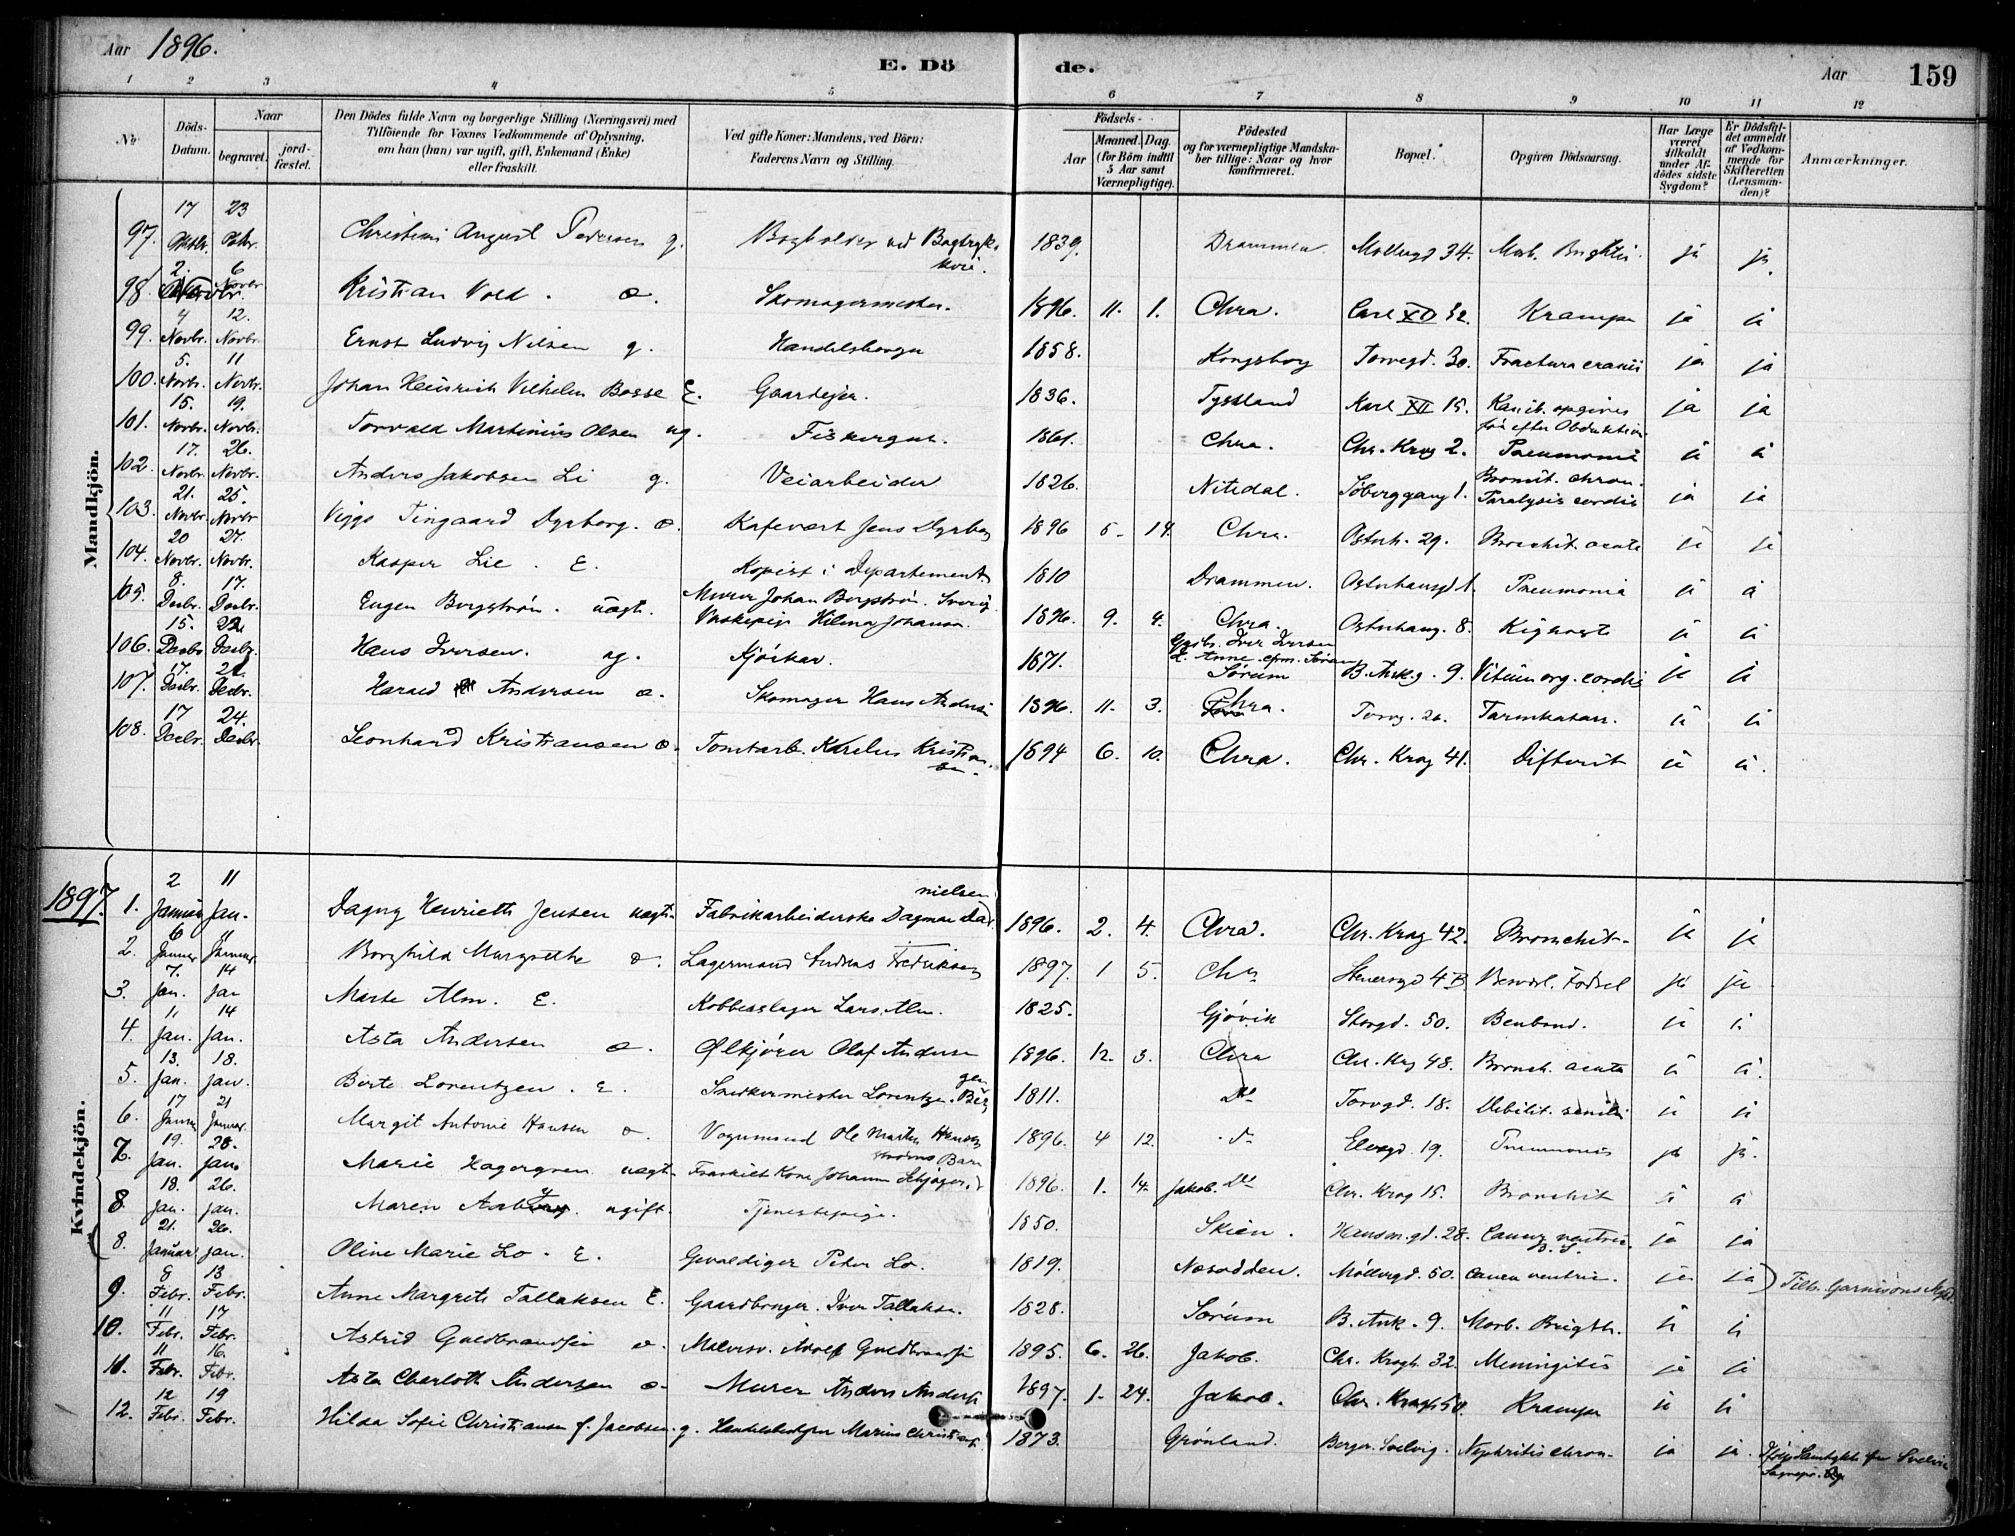 Aar 1896. E. Dö de. Aar 159
1 2 3 4 5 6 7 8 9 10 11 12
№ Döds-Datum. Naar begravet. jord-fæstet. Den Dödes fulde Navn og borgerlige Stilling (Næringsvei) med Tilföiende for Voxnes Vedkommende af Oplysning, om han (hun) var ugift, gift, Enkemand (Enke) eller fraskilt. Ved gifte Koner: Mandens, ved Börn: Faderens Navn og Stilling. Födsels- Aar Maaned. Dag. (for Börn indtil 5 Aar samt Værnepligtige). Födested og for værnepligtige Mandskaber tillige: Naar og hvor konfirmeret. Bopæl. Opgiven Dödsaarsag. Har Læge været tilkaldt under Afdödes sidste Sygdom? Er Dödsfaldet anmeldt af Vedkommende for Skifteretten (Lensmanden)? Anmærkninger.
Mandkjön.
97. 17 23 Christian August Pedersen g. Bogholder ved Bogtrykkeri. 1839. Drammen Möllergd 34. Morb. Brightii. ja ja
98. 2. Novbr. 6 Novbr Kristian Vold. æ. Skomagermester. 1896. 11. 1. Chra. Carl XII 32. Krampe ja ja
99. 4 Novbr. 12. Novbr. Ernst Ludvig Nilsen g. Handelsborger 1858. Kongsberg Torvegd. 30. Fractura cranii ja ja
100. 5. Novbr. 11 Novbr. Johan Heinrich Vilhelm Bosse E. Gaardejer. 1836. Tyskland Karl XII 15. Kan ik. opgives før efter Obduktion ja ja
101. 15. Novbr. 19. Novbr. Torvald Martinius Olsen ug. Fiskergut. 1861. Chra. Chr. Krog 2. Pneumoni ja ja
102. 17. Novbr. 26. Novbr. Anders Jakobsen Li g. Veiarbeider 1826. Nitedal. Söberggang 1. Bronit. chron. Paralysis cordis ja ja
103. 21. Novbr. 25. Novbr Viggo Tingaard Dyrborg. æ. Kafevært Jens Dyrborg 1896 5. 14. Chra. Osterh. 29. Bronchit. acuta ja ja
104. 20 Novbr. 27. Novbr. Kasper Lie. E. Kopist i Departement. 1810 Drammen. Osterhausgd 1. Pneumonia ja ja
105. 8. Decbr. 17. Decbr. Eugen Bergström. uægt. Murer Johan Bergström. Sverig Vaskepige Hilma Johanson. 1896. 9. 4. Chra. Osterhausg. 8. Kighoste ja ja
106. 15. Decbr 22 Decbr. Hans Iversen. ug. Kjörkar. 1871. Iver Iversen Anne Sörum B. Ank.g. 9. Vitium org. cordis ja ja
107. 17. Decbr. 22. Decbr. Harald Andersen æ. Skomager Hans Andersen 1896. 11. 3. Chra. Torvg. 20. Tarmkatarr. ja ja
108. 17 Decbr. 24. Decbr. Leonhard Kristiansen æ. Tomtarb. Karelius Kristiansen. 1894 6. 10. Chra. Chr. Krog 41. Difterit ja ja.
Kvindekjön.
1897.
1. 2 Januar 11 Jan. Dagny Henriette Jensen uægt. Fabrikarbeiderske Dagmar Danielsen 1896. 2. 4. Chra. Chr. Krog 42. Bronchit. ja ja
2. 6 Januar 11 Januar Borghild Margrethe æ. Lagermand Andreas Fredriksen 1897. 1 5. Chra Stenersgd 4 B Besværl. Födsel ja ja
3. 7. Jan. 14 Jan Marte Alm. E. Kobberslager Lars Alm. 1825. Gjövik Storgd. 50. Benbrud. ja ja
4. 11 Jan. 14 Jan. Asta Andersen æ. Ølkjörer Olaf Andersen 1896. 12. 3. Chra Chr. Krog 48. Bronch. acuta ja ja
5. 13. Jan. 18. Jan. Berte Lorentzen. E. Snedkermester Lorentzen. Bergen 1811. Do Torvgd. 18. Debilit. senilis ja ja
6. 17 Januar 21 Januar. Margit Antonie Hansen æ. Vognmand Ole Martin Hansen 1896. 4 12. do Elvegd. 19. Pneumonia ja ja.
7. 19. Jan. 28. Jan. Marie Hagergren uægt. Fraskilt Kone Johanne 1896. 1. 14. Jakob. Do Chr. Krog 15. Bronchit ja ja
8. 18. Jan. 26. Jan. Maren Aaby. ugift. Tjenestepige. 1850. Skien. Hausm.gd. 28. Cancer ventric. ja ja
8. 21. Januar 26. Jan. Oline Marie Lo. E. Gevaldiger Peter Lo. 1819. Nesodden. Möllergd. 50. Cancer ventric. ja ja Tilh. Garnisons
9. 8 Febr. 13 Febr. Anne Margrete Tallaksen E. Gaardbruger. Iver Tallaksen. 1828. Sörum B. Ank. 9. Morb. Brigth. ja ja
10. 11 Febr. 17 Febr. Astrid Guldbrandsen æ. Malersv. Adolf Guldbrandsen 1895. 6. 26. Jakob. Chr. Krogh. 32. Meningitis ja ja
11. 11 Febr. 16. Febr. Asta Charlotte Andersen æ. Murer Anders Andersen 1897. 1. 24. Jakob. Chr. Krogs 50. Krampe ja ja
12. 12 Febr. 19 Febr. Hilda Sofie Christiansen f. Jacobsen. g. Handelsbetjen Marius Christians. 1873. Grønland. Berger. Svelvig. Nephritis chron. ja ja. Svelvik